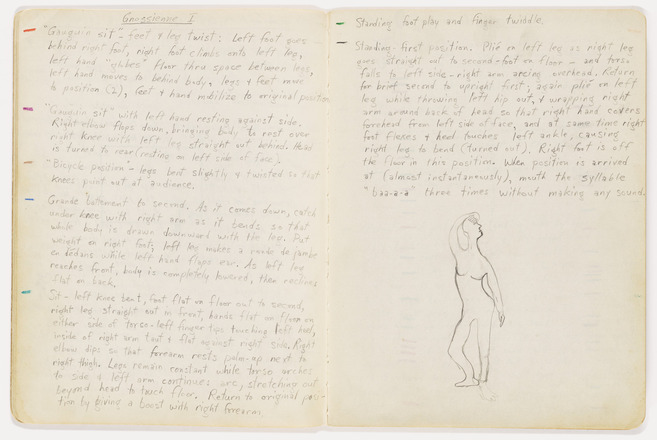 Gnossienne 1
"Gauguin sit" - feet & leg twist: Left foot goes
behind right foot, right foot climbs onto left leg,
left hand floor thru space between legs,
left hand moves to behind body, legs & feet move
to position (2), feet & hand mobilize to original position
"Gauguin sit" with left hand resting against side.
Right elbow flops down, bringing body to rest over
right knee with left leg straight out behind. Head
is turned to rear (resting on left side of face).
"Bicycle position" - legs bent slightly & twisted so that
knees point out at audience.
Grande battement to second. As it comes down, catch
under knee with right arm as it bends so that
whole body is drawn downward with the leg. Put
weight on right foot, left leg makes a ronde de jambe
en dedans while left hand flaps ear. As left leg
reaches front, body is completely lowered, then reclines
flat on back.
Sit - left knee bent, foot flat on floor out to second,
right leg straight out in front, hands flat on floor on
either side of torso - left finger tips touching left heel,
inside of right arm taut & against right side. Right
elbow dips so that forearm rests palm-up next to
right thigh. Legs remain constant while torso arches
to side & left arm continues arc, stretching out
beyond head to touch floor. Return to original posi-
tion by giving a boost with right forearm
Standing foot play and finger twiddle.
Standing first position. Plié on left leg as right leg
goes straight out to second - foot on floor - and torso
falls to left side - right arm arcing overhead. Return
for brief second to upright first; again plié on left
leg while throwing left hip out, & wrapping right
arm around back of head so that right hand covers
forehead from left side of face, and at same time right
foot flexes & heel touches left ankle, causing
right leg to bend (turned out). Right foot is off
the floor in this position. When position is arrived
at (almost instantaneously), mouth the syllable
"baa-a-a" three times without making any sound.